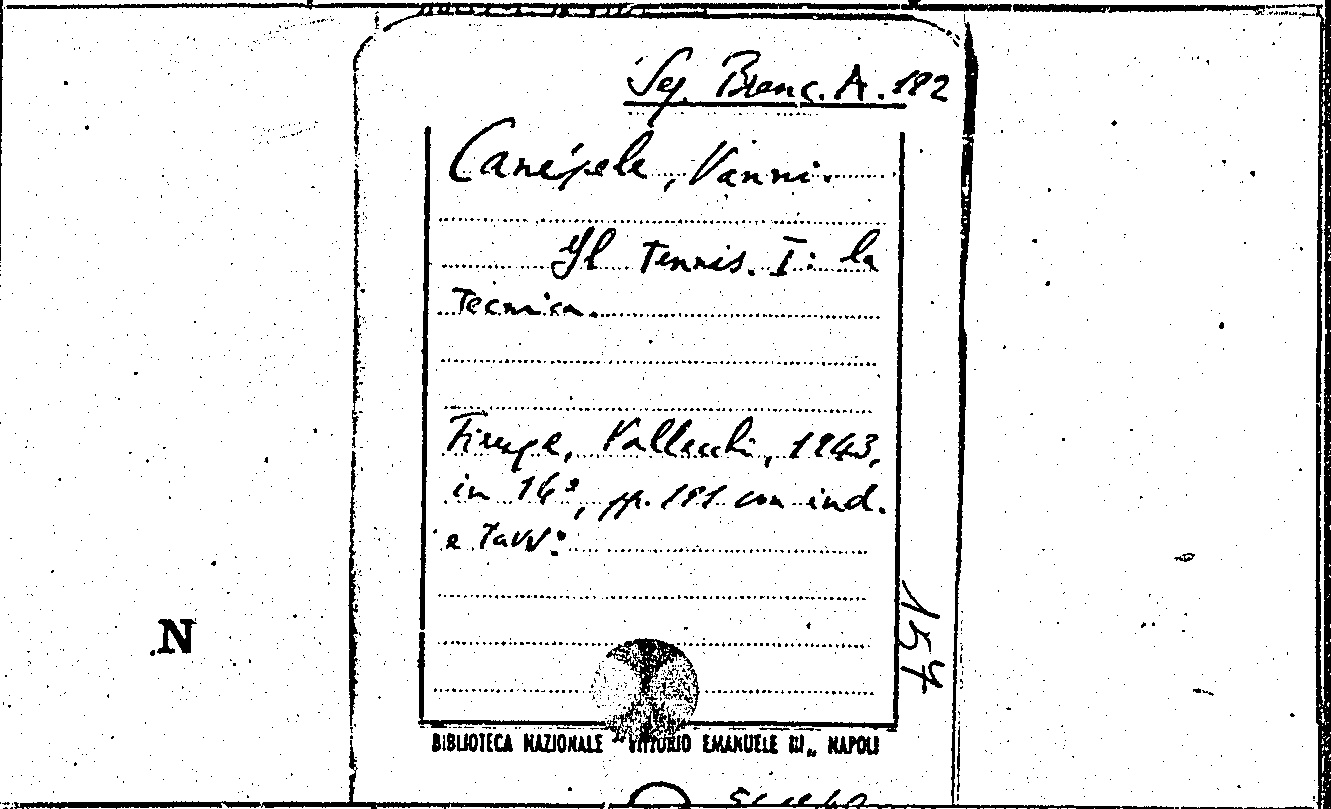 Sez. Branc. A. 182
Canépele, Vanni.
Il Tennis. I: la
Tecnica.
Firenze, Vallecchi, 1943,
in 16º, pp. 191 con ind.
e Tavv.
157
N
BIBLIOTECA NAZIONALE "VITTORIO EMANUELE III" NAPOLI